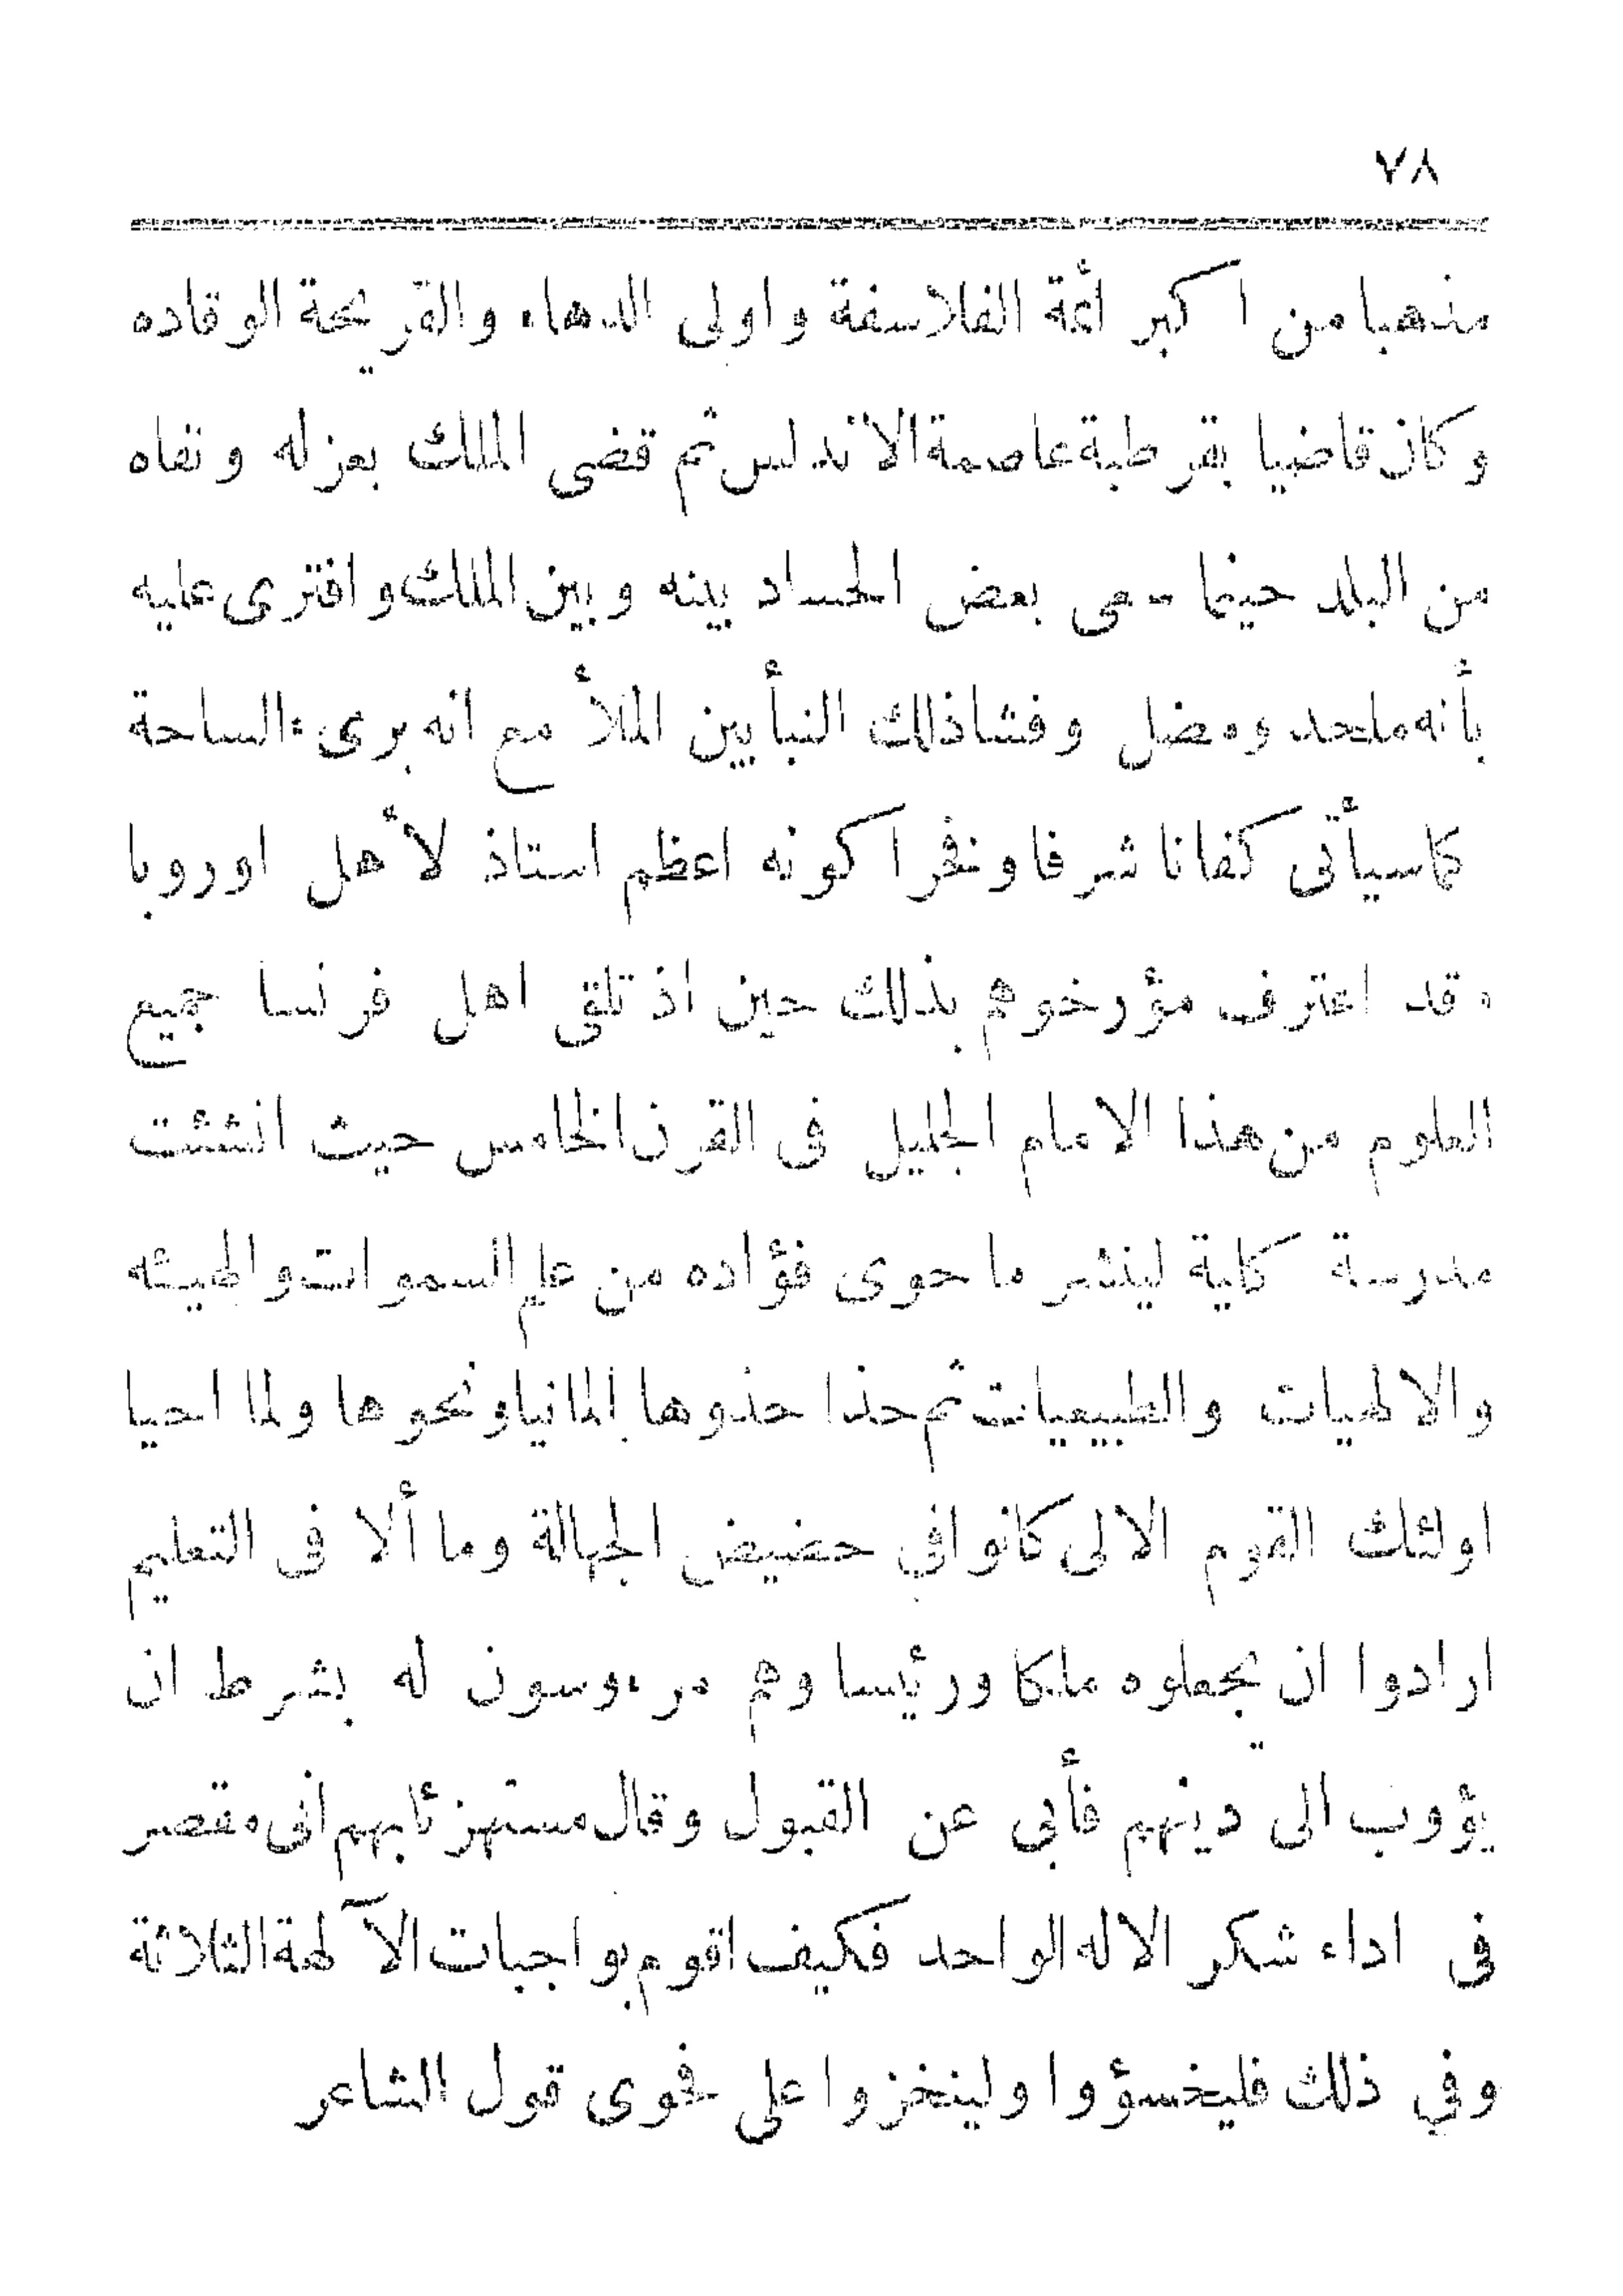 ٧٨
مذهبا من اكبر أئمة الفلاسفة واولى الدهاء والقريحة الوقاده
وكان قاضيا بقرطبة عاصمة الاندلس ثم قضى الملك بعزله ونفاه
من البلد حينما سعى بعض الحساد بينه وبين الملك وافترى عليه
بأنه ملحد ومضل وفشا ذلك النبأ بين الملأ مع انه برىء الساحة
كما سيأتى كفانا شرفا وفخرا كونه اعظم استاذ لأهل اوروبا
وقد اعترف مؤرخوهم بذلك حين اذ تلقى اهل فرنسا جميع
العلوم من هذا الامام الجليل فى القرن الخامس حيث انشئت
مدرسة كلية لينشر ما حوى فؤاده من علم السموات والهيئه
والالهيات والطبيعيات ثم حذا حذوها المانيا ونحوها ولما احيا
اولئك القوم الالى كانوا في حضيض الجهالة وما ألا فى التعليم
ارادوا ان يجعلوه ملكا ورئيسا وهم مرءوسون له بشرط ان
يؤوب الى دينهم فأبى عن القبول وقال مستهزئا بهم انى مقصر
فى اداء شكر الاله الواحد فكيف اقوم بواجبات الآلهة الثلاثة
وفي ذلك فليخسؤوا ولينخزوا على فحوى قول الشاعر